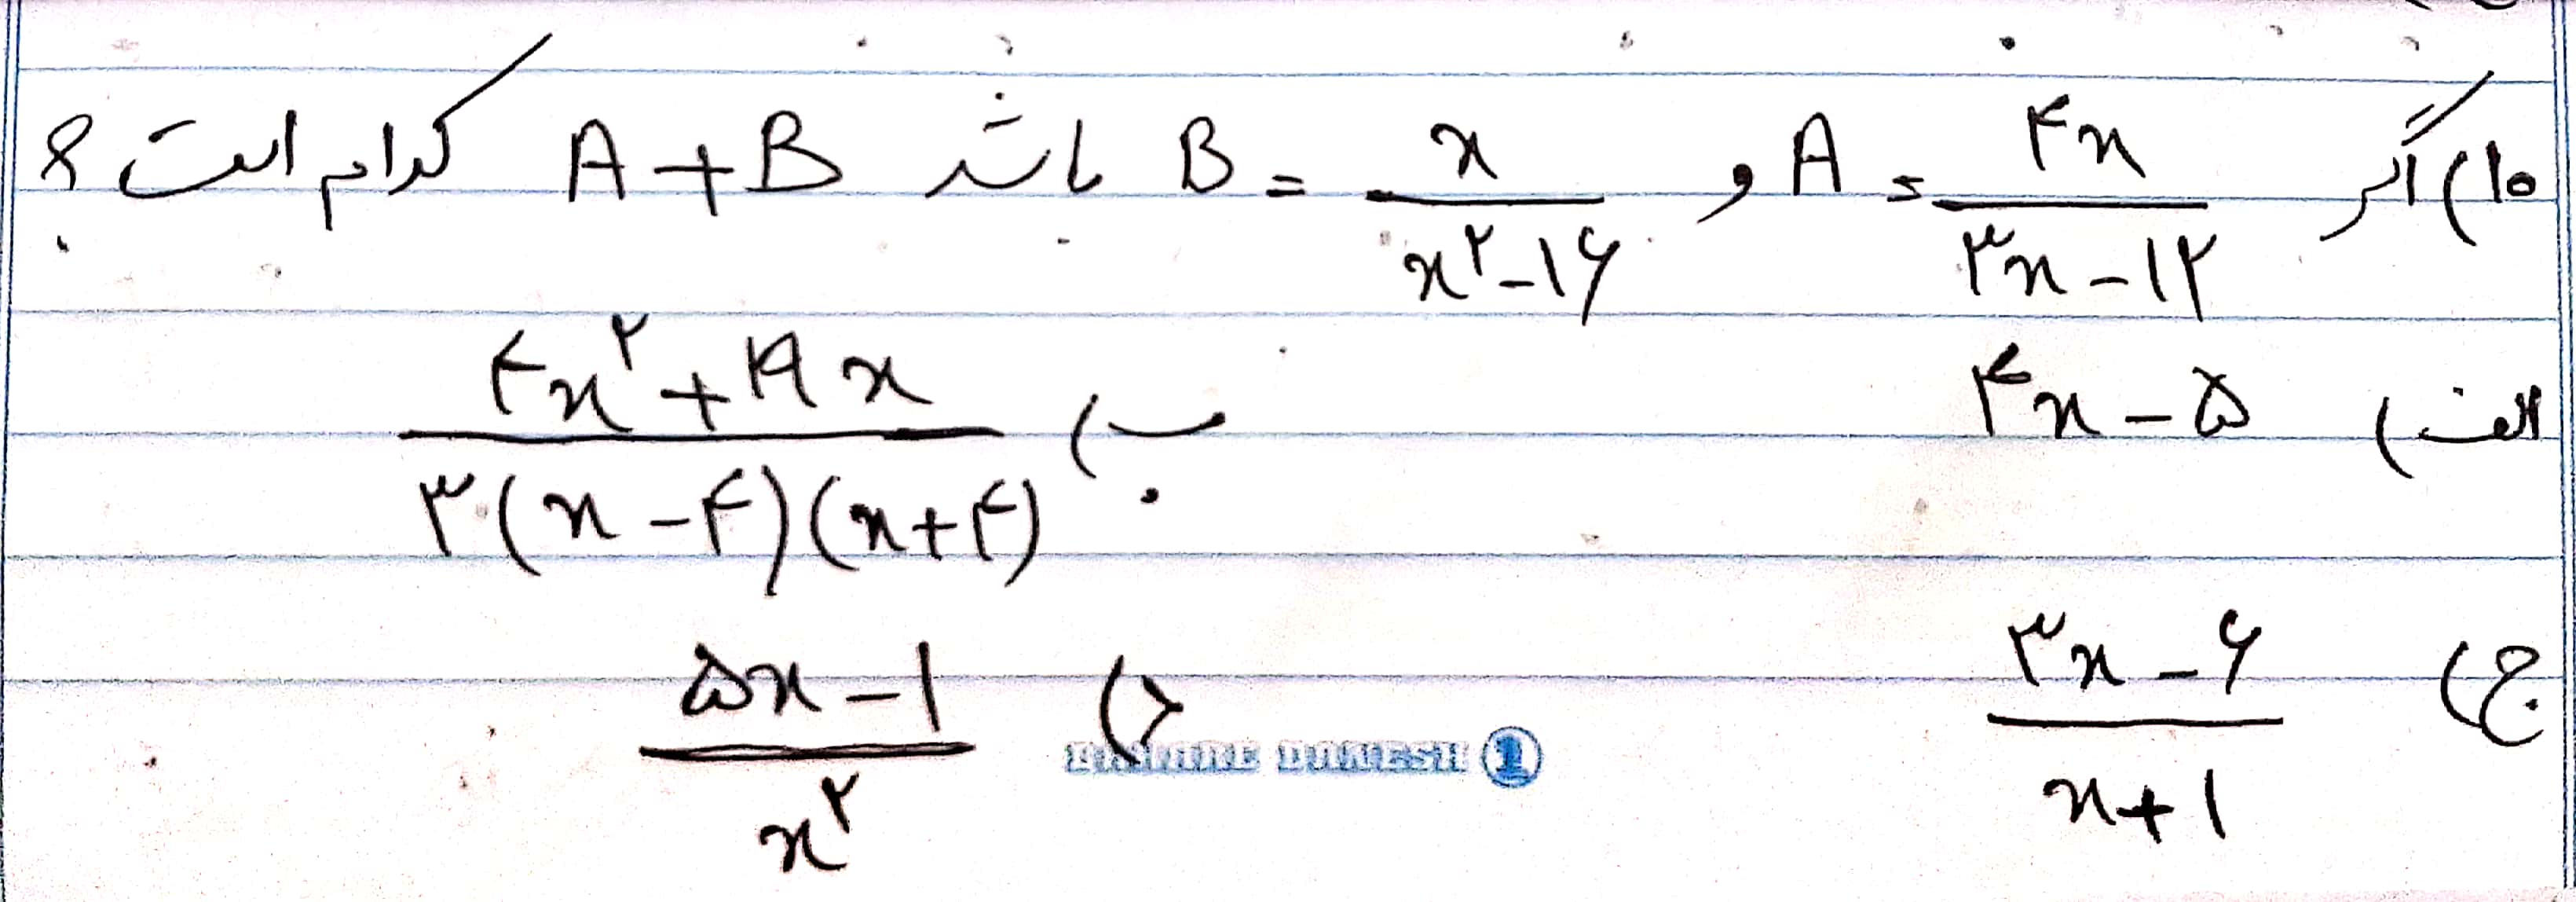 ۱۰) اگر A = ۴x / ۳x - ۱۲ و B = x / x^۲ - ۱۶ باشد A + B کدام است؟
الف) ۴x - ۵ ب) ۴x^۲ + ۱۹x / ۳(x - ۴)(x + ۴)
ج) ۳x - ۶ / x + ۱ د) ۵x - ۱ / x^۲